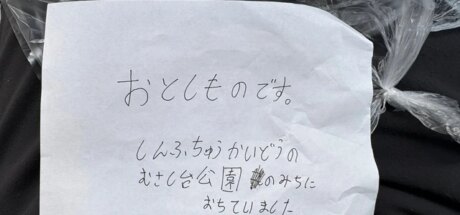 おとしものです。
しんふちゅうかいどうの
むさし台公園のみちに
おちていました